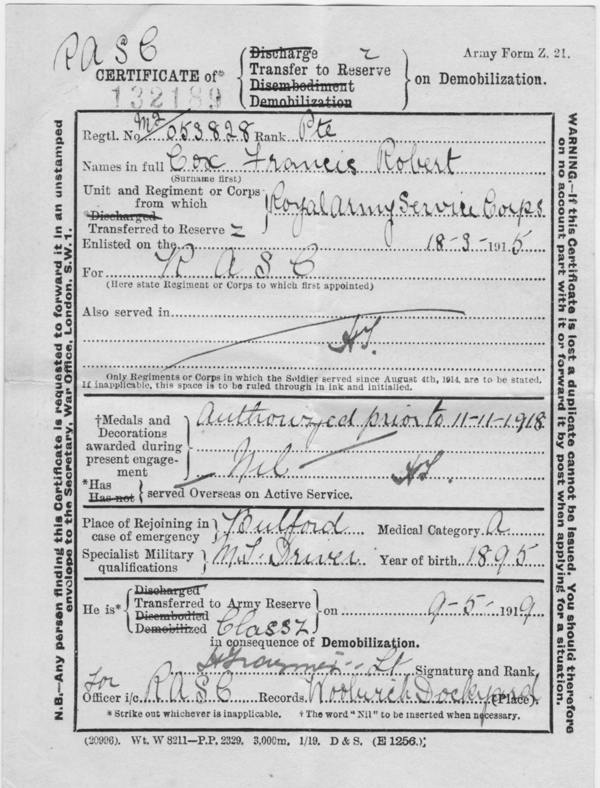 R A S C
Army Form Z. 21.
CERTIFICATE of* { Discharge Transfer to Reserve Z Disembodiment Demobilization } on Demobilization.
132189
Regtl. No. M2/053828 Rank Pte
Names in full Cox Francis Robert
(Surname first)
Unit and Regiment or Corps
from which
*Discharged
Transferred to Reserve Z
Royal Army Service Corps
Enlisted on the 18-3-1915
For R A S C
(Here state Regiment or Corps to which first appointed)
Also served in
Only Regiments or Corps in which the Soldier served since August 4th, 1914, are to be stated.
If inapplicable, this space is to be ruled through in ink and initialled.
†Medals and
Decorations
awarded during
present engage-
ment
Authorized prior to 11-11-1918
Nil
*Has
Has not
served Overseas on Active Service.
Place of Rejoining in
case of emergency
Bulford Medical Category A
Specialist Military
qualifications
M.T. Driver Year of birth 1895
He is*
Discharged
Transferred to Army Reserve
Disembodied
Demobilized
Class Z
on 9-5-1919
in consequence of Demobilization.
Lt Signature and Rank,
for
Officer i/c. R A S C Records. Woolwich Dockyard (Place).
* Strike out whichever is inapplicable. † The word "Nil" to be inserted when necessary.
(20996). Wt. W 8211—P.P. 2329. 3,000m. 1/19. D & S. (E 1256.)
N.B.—Any person finding this Certificate is requested to forward it in an unstamped
envelope to the Secretary, War Office, London, S.W. 1.
WARNING.—If this Certificate is lost a duplicate cannot be issued. You should therefore
on no account part with it or forward it by post when applying for a situation.